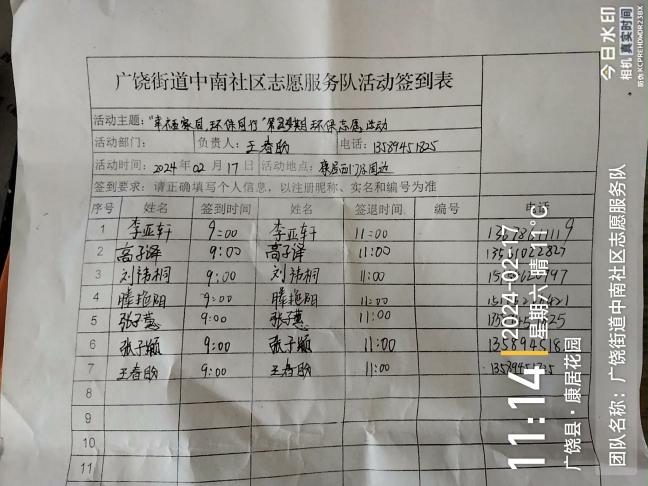 广饶街道中南社区志愿服务队活动签到表
活动主题：
环保志愿活动
活动部门： 负责人：王春盼 电话：13589451825
活动时间：2024年02月17日 活动地点：康居西门及周边
签到要求：请正确填写个人信息，以注册昵称、实名和编号为准
序号 姓名 签到时间 姓名 签退时间 编号 电话
1 李亚轩 9:00 李亚轩 11:00
2 高子泽 9:00 高子泽 11:00
3 刘祎桐 9:00 刘祎桐 11:00
4 滕艳阳 9:00 滕艳阳 11:00
5 张子蕙 9:00 张子蕙 11:00
6 张子颖 9:00 张子颖 11:00
7 王春盼 9:00 王春盼 11:00
8
9
10
11
今日水印
相机 真实时间
防伪 KCPREHDNDR23BX
11:14
2024-02-17
星期六 晴 11°C
广饶县·康居花园
团队名称：广饶街道中南社区志愿服务队